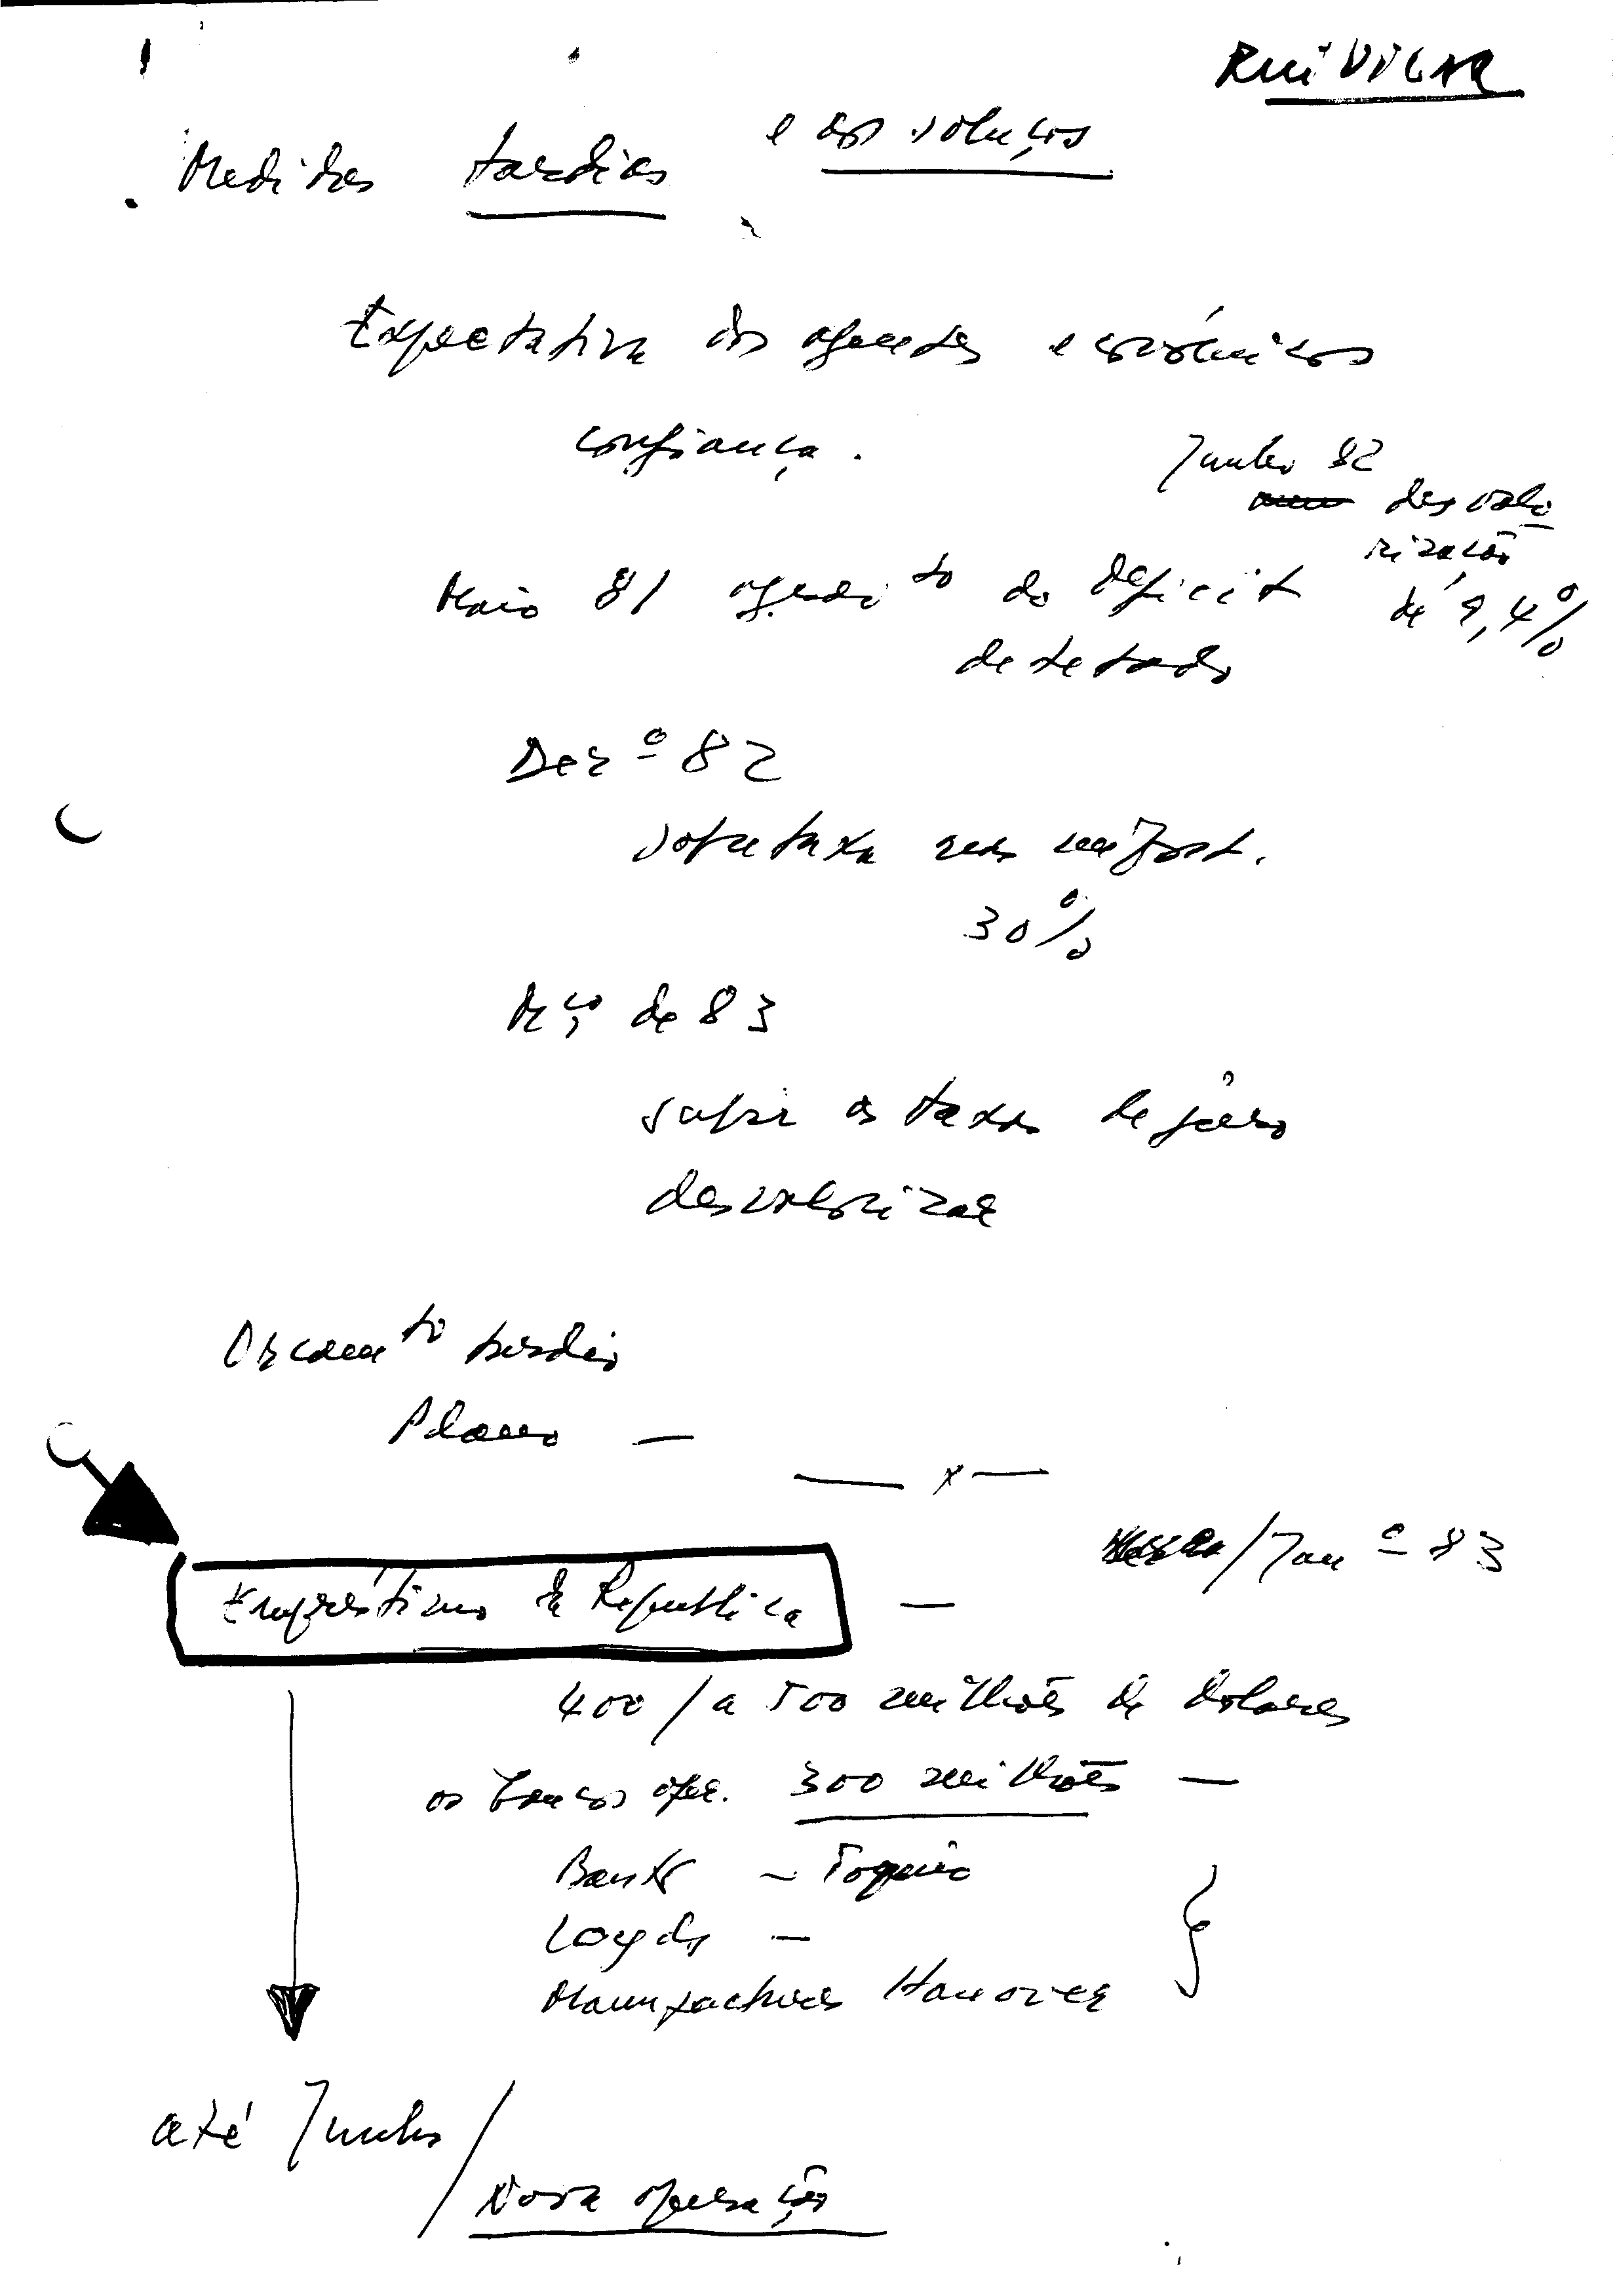 Rui VILAR
Medidas tardias e as soluções
Expectativa dos agentes económicos
confiança.
Junho 82
desvalo
rização
de 9,4%
Maio 81 agravto do deficit
detetado
Dezº 82
sobretaxa nas import.
30%
Mço de 83
subir as taxas de juro
desvalorizar
Orçamto tardio
Plano —
— x —
/Janº 83
Empréstimo da República —
400 / a 500 milhões de dolares
os bancos oper. 300 milhões —
Bank — Toquio
Loyds —
Manufactures Hanover
até Junho /
Nova operação